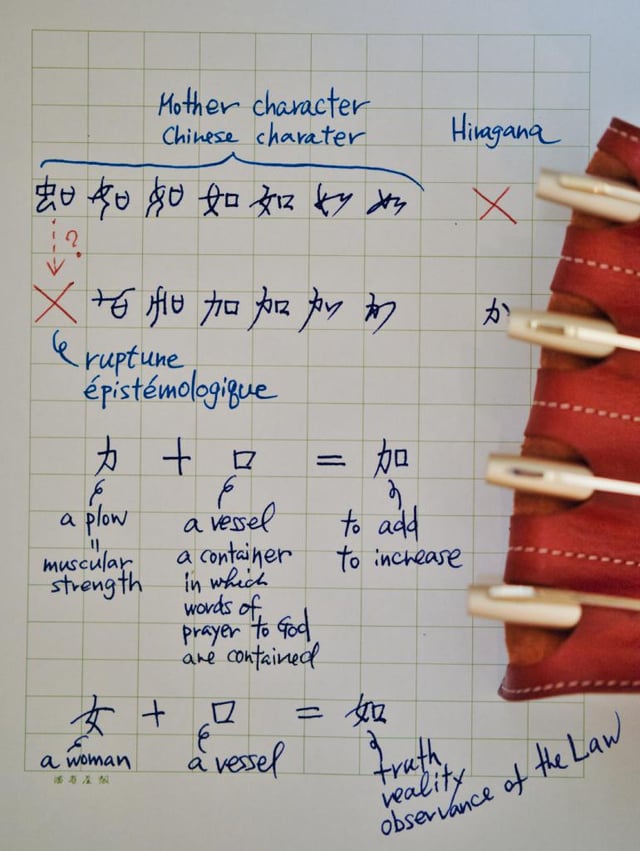 Mother character
Chinese charater
Hiragana
如 如
?
加 加
か
ruptune
épistémologique
力 + 口 = 加
a plow
||
muscular
strength
a vessel
a container
in which
words of
prayer to God
are contained
to add
to increase
女 + 口 = 如
a woman
a vessel
truth
reality
observance of the Law